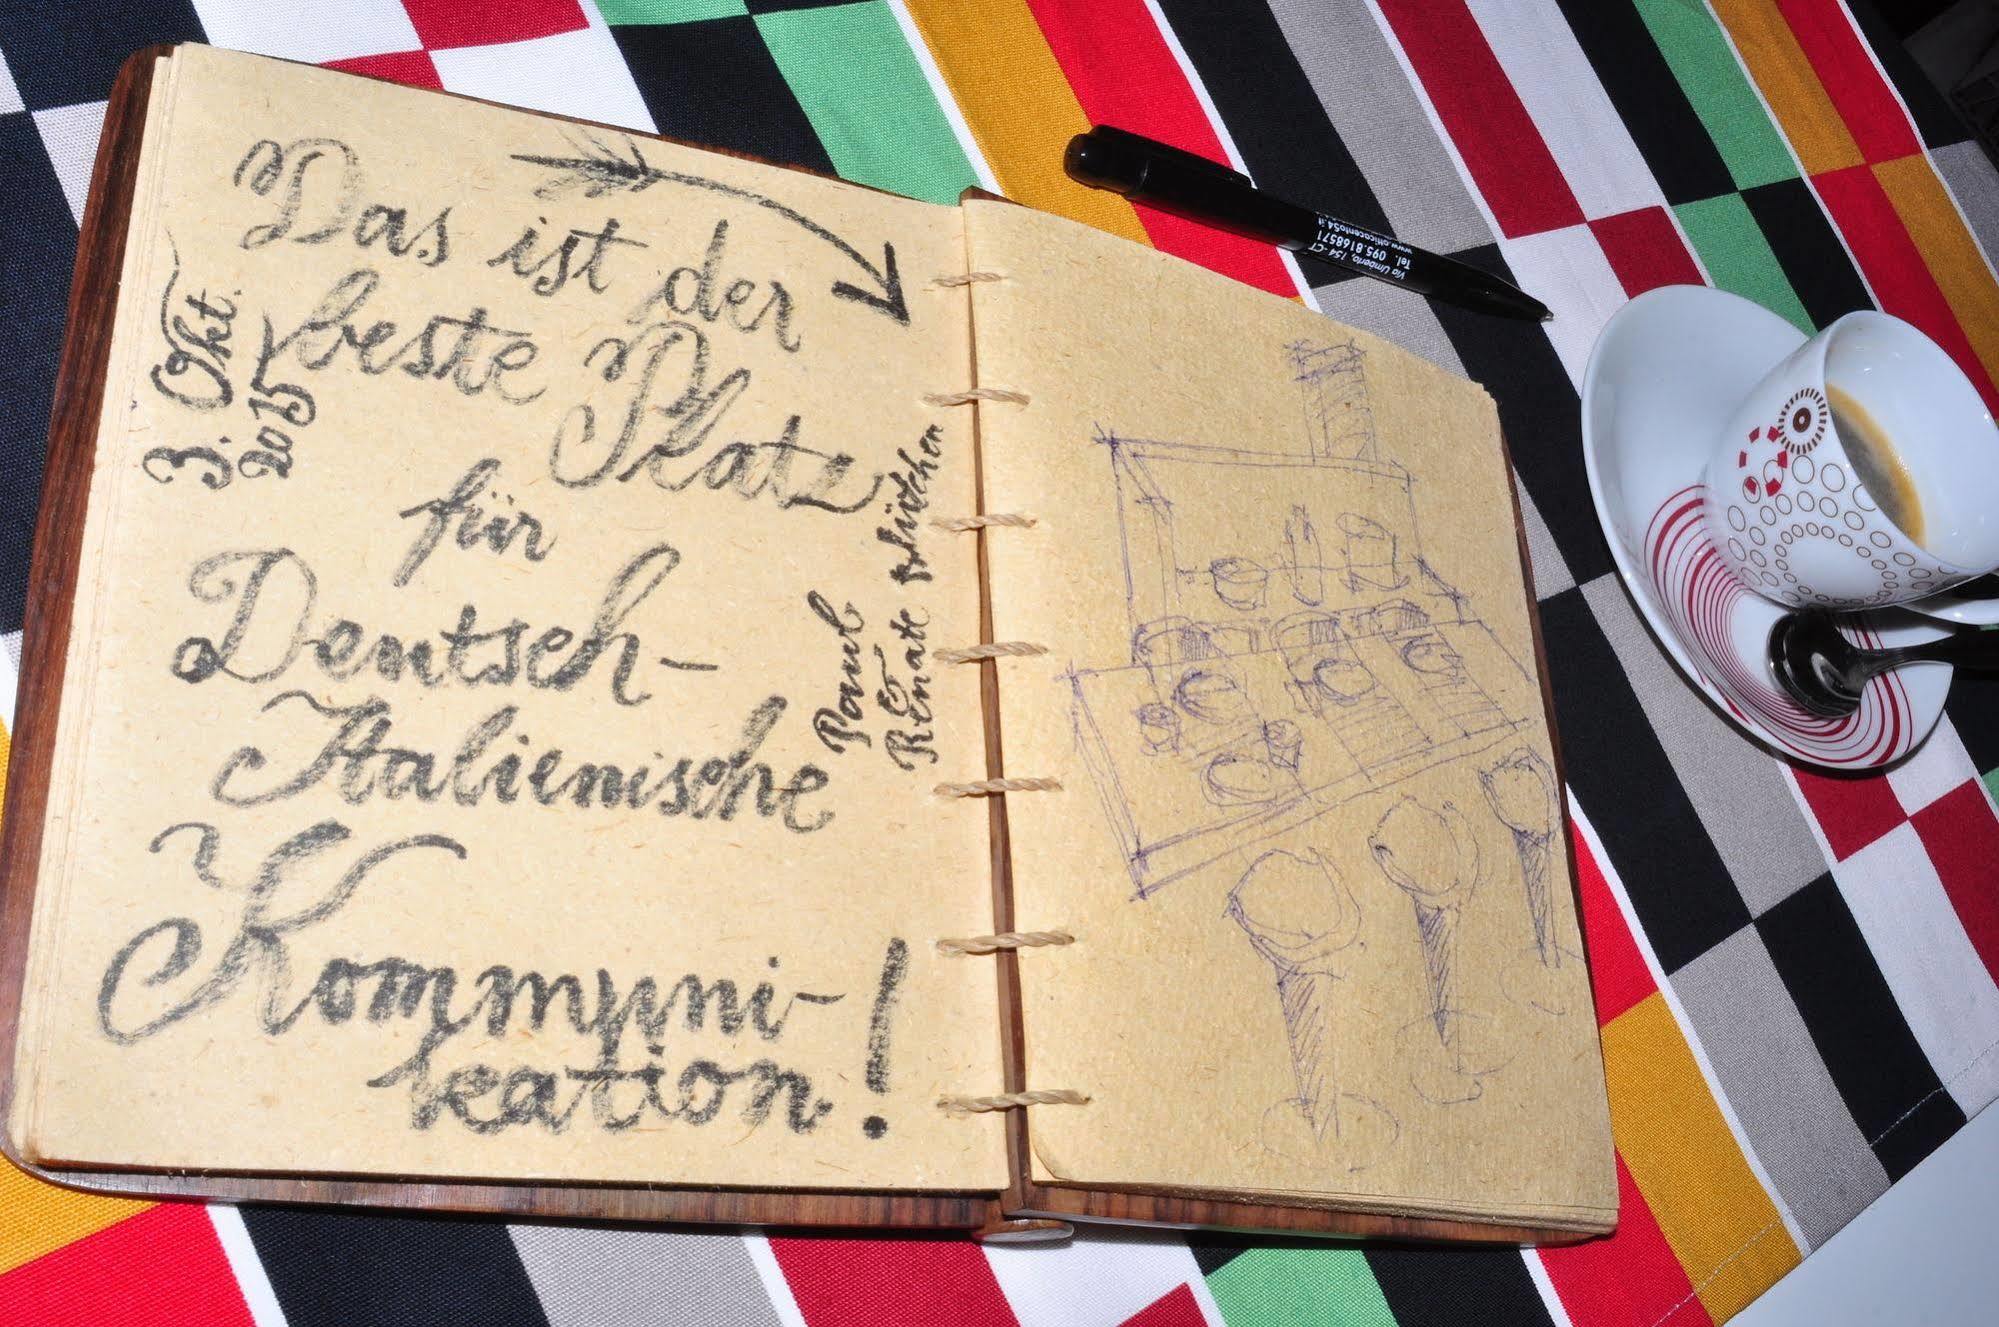 Das ist der
beste Platz
für
Deutsch-
Italienische
Kommuni-
kation!
3. Okt.
2015
&
Renate
Via Umberto, 154 -CT
Tel. 095.8168571
www.otticacento54.it